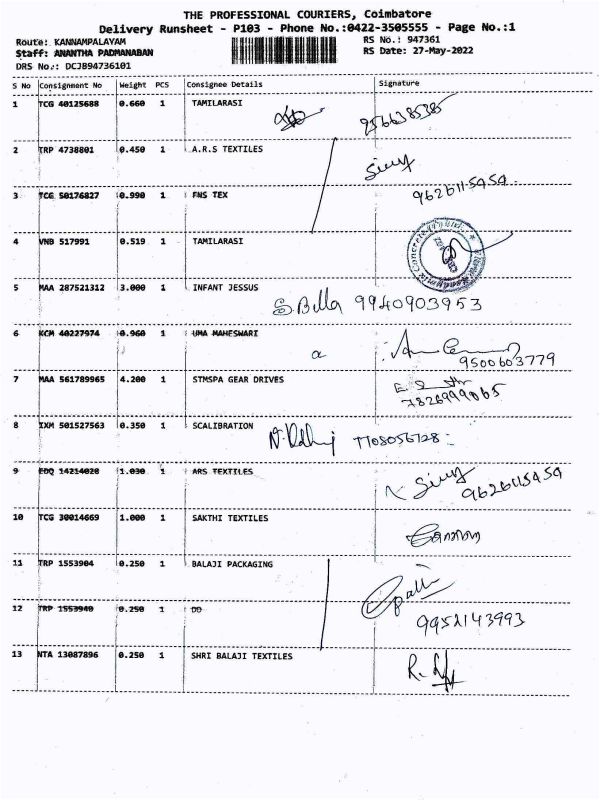 THE PROFESSIONAL COURIERS, Coimbatore
Delivery Runsheet - P103 - Phone No.:0422-3505555 - Page No.:1
Route: KANNAMPALAYAM RS No.: 947361
Staff: ANANTHA PADMANABAN RS Date: 27-May-2022
DRS No.: DCJ894736101
S No Consignment No Weight PCS Consignee Details Signature
1 TCG 40125688 0.660 1 TAMILARASI
2 TRP 4738801 0.450 1 A.R.S TEXTILES
9626115959
3 TCG 50176827 0.990 1 FNS TEX
4 VNB 517991 0.519 1 TAMILARASI
5 MAA 287521312 3.000 1 INFANT JESSUS
S.Billa 9940903953
6 KCM 40227974 0.960 1 UMA MAHESWARI
9500603779
7 MAA 561789965 4.200 1 STMSPA GEAR DRIVES
7826999065
8 IXM 501527563 0.350 1 SCALIBRATION
7708056728
9 EDQ 14214020 1.030 1 ARS TEXTILES
9626115959
10 TCG 30014669 1.000 1 SAKTHI TEXTILES
11 TRP 1553904 0.250 1 BALAJI PACKAGING
12 TRP 1553940 0.250 1 DD
9952143993
13 NTA 13087896 0.250 1 SHRI BALAJI TEXTILES